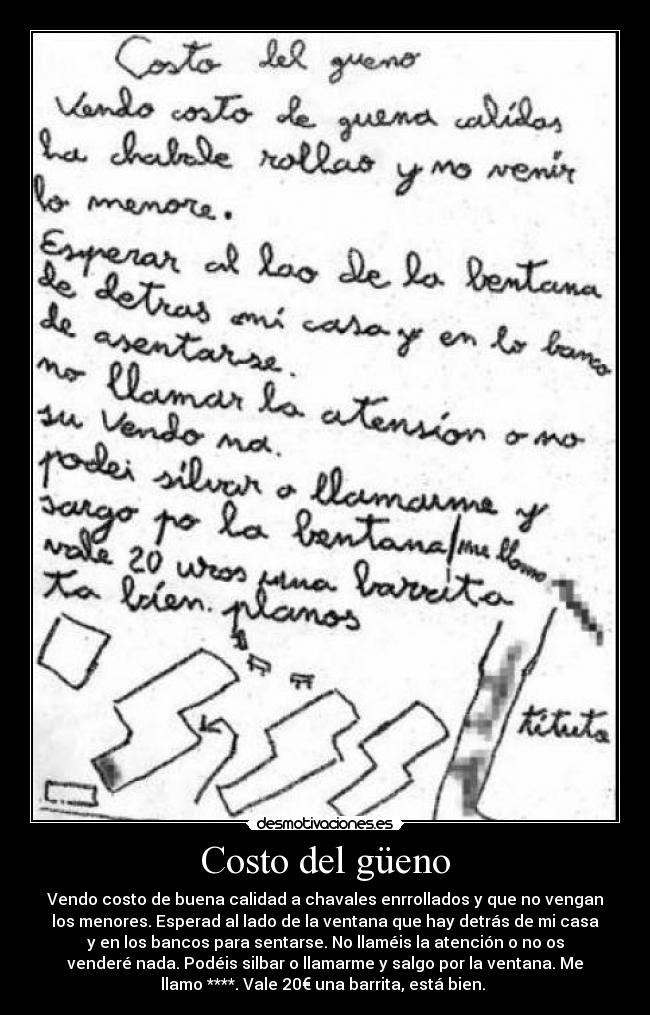 Costo del gueno
Vendo costo de guena calidas
ha chabale rollao y no venir
lo menore.
Esperar al lao de la bentana
de detras mi casa y en lo banco
de asentarse.
no llamar la atensíon o no
su Vendo na.
podei silvar o llamarme y
sargo po la bentana/me llamo
vale 20 uros una barrita
ta bíen. planos
tituto
desmotivaciones.es
Costo del güeno
Vendo costo de buena calidad a chavales enrrollados y que no vengan
los menores. Esperad al lado de la ventana que hay detrás de mi casa
y en los bancos para sentarse. No llaméis la atención o no os
venderé nada. Podéis silbar o llamarme y salgo por la ventana. Me
llamo ****. Vale 20€ una barrita, está bien.